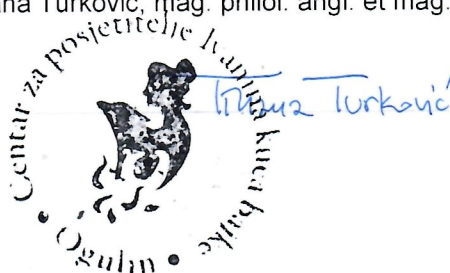 ana Turković, mag. philol. angl. et mag.
Centar za posjetitelje Ivanina kuća bajke
• Ogulin •
Turković